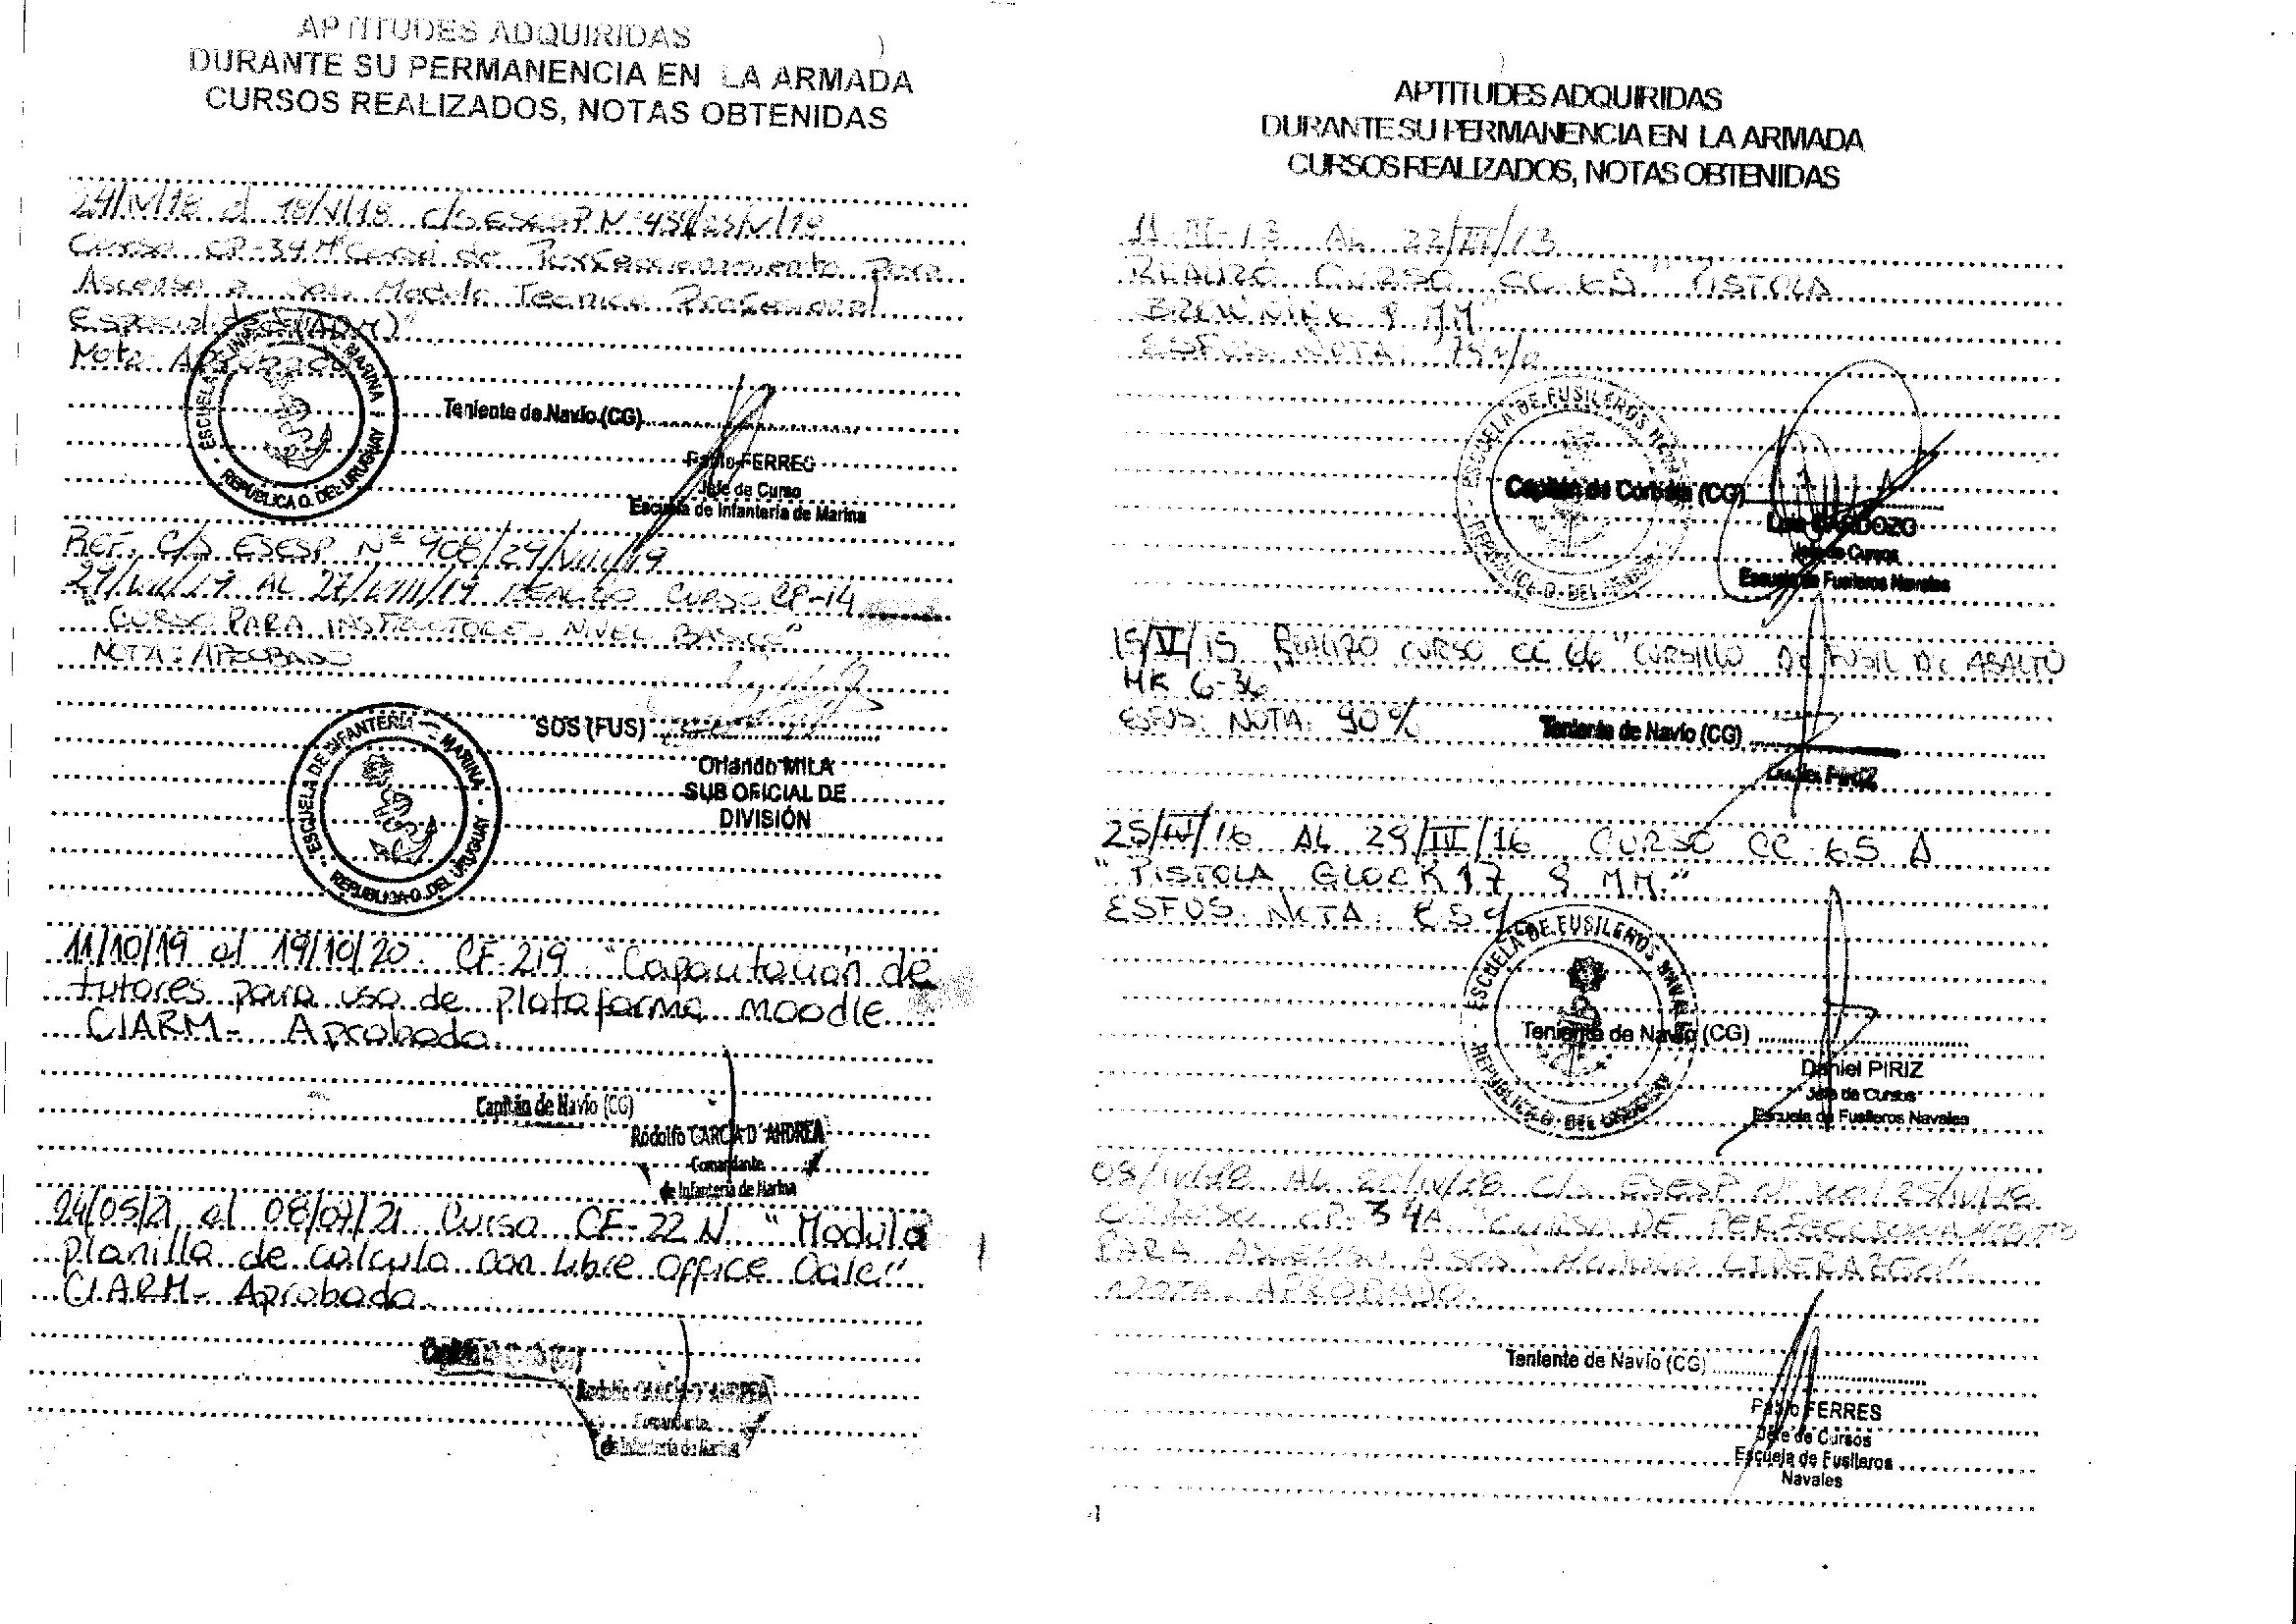 APTITUDES ADQUIRIDAS
DURANTE SU PERMANENCIA EN LA ARMADA
CURSOS REALIZADOS, NOTAS OBTENIDAS
24/IV/18 al 18/V/18 C/S ESESP Nº
Curso CP-34 Curso de Perfeccionamiento para
Ascenso a Modulo Tecnico Profesional
Especialidad (ADM)"
Nota: Aprobado
ESCUELA DE INFANTERIA DE MARINA
REPUBLICA O. DEL URUGUAY
Teniente de Navío (CG)
Pablo FERRES
Jefe de Curso
Escuela de Infantería de Marina
REF. C/S ESESP Nº 908/29/VIII/19
AL 27/VIII/19 REALIZO CURSO CP-14
CURSO PARA INSTRUCTORES NIVEL BASICO"
NOTA: APROBADO
SOS (FUS)
Orlando MILA
SUB OFICIAL DE
DIVISIÓN
ESCUELA DE INFANTERIA DE MARINA
REPUBLICA O. DEL URUGUAY
11/10/19 al 19/10/20. CF 219 "Capacitación de
tutores para uso de plataforma moodle
CIARM- Aprobado.
Capitán de Navío (CG)
Rodolfo GARCIA D'ANDREA
Comandante
de Infantería de Marina
24/05/21 al 08/07/21 Curso CF-22 N "Modulo
planilla de calculo con Libre Office Calc"
CIARM- Aprobado.
Rodolfo GARCIA D'ANDREA
Comandante
de Infantería de Marina
APTITUDES ADQUIRIDAS
DURANTE SU PERMANENCIA EN LA ARMADA
CURSOS REALIZADOS, NOTAS OBTENIDAS
11-III-13 AL 22/III/13
REALIZÓ CURSO CC 65 "PISTOLA
9 MM"
ESFUS NOTA: 75%
ESCUELA DE FUSILEROS NAVALES
REPUBLICA O. DEL URUGUAY
Capitán de Corbeta (CG)
Luis CARDOZO
Jefe de Cursos
Escuela de Fusileros Navales
15/VI/15 REALIZO CURSO CC 66 "CURSILLO DE FUSIL DE ASALTO
HK G-36
ESFUS: NOTA: 90%
Teniente de Navío (CG)
PIRIZ
25/IV/16 AL 29/IV/16 CURSO CC 65 A
"PISTOLA GLOCK 17 9 MM."
ESFUS: NOTA: 85%
ESCUELA DE FUSILEROS NAVALES
REPUBLICA O. DEL URUGUAY
Teniente de Navío (CG)
Daniel PIRIZ
Jefe de Cursos
Escuela de Fusileros Navales
AL 20/IV/18 C/S ESESP Nº
CURSO CP-34A "CURSO DE PERFECCIONAMIENTO
PARA ASCENSO A SOS MODULO LIDERAZGO"
NOTA: APROBADO.
Teniente de Navío (CG)
Pablo FERRES
Jefe de Cursos
Escuela de Fusileros
Navales